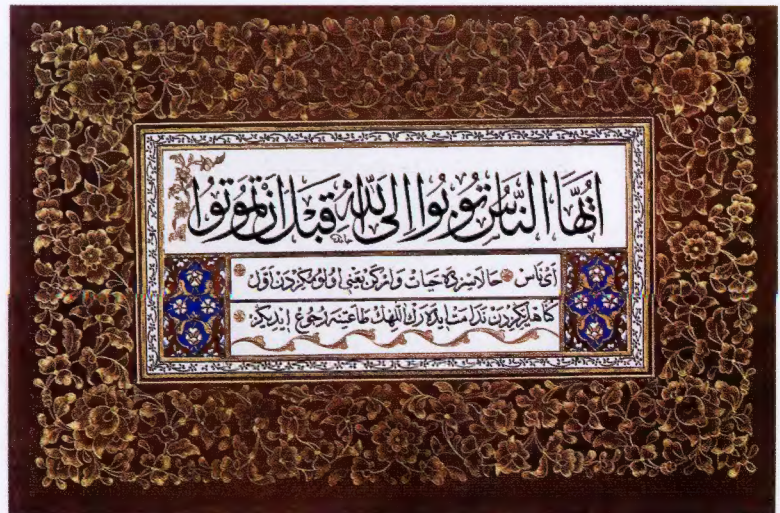 أَيُّهَا النَّاسُ تُوبُوا إِلَى اللّٰهِ قَبْلَ أَنْ تَمُوتُوا
أى ناس حالا سزده حيات واركن يعنى اولومكزدن اول
كناهلريكزدن ندامت ايده رك اللهك طاعتنه رجوع ايديكز